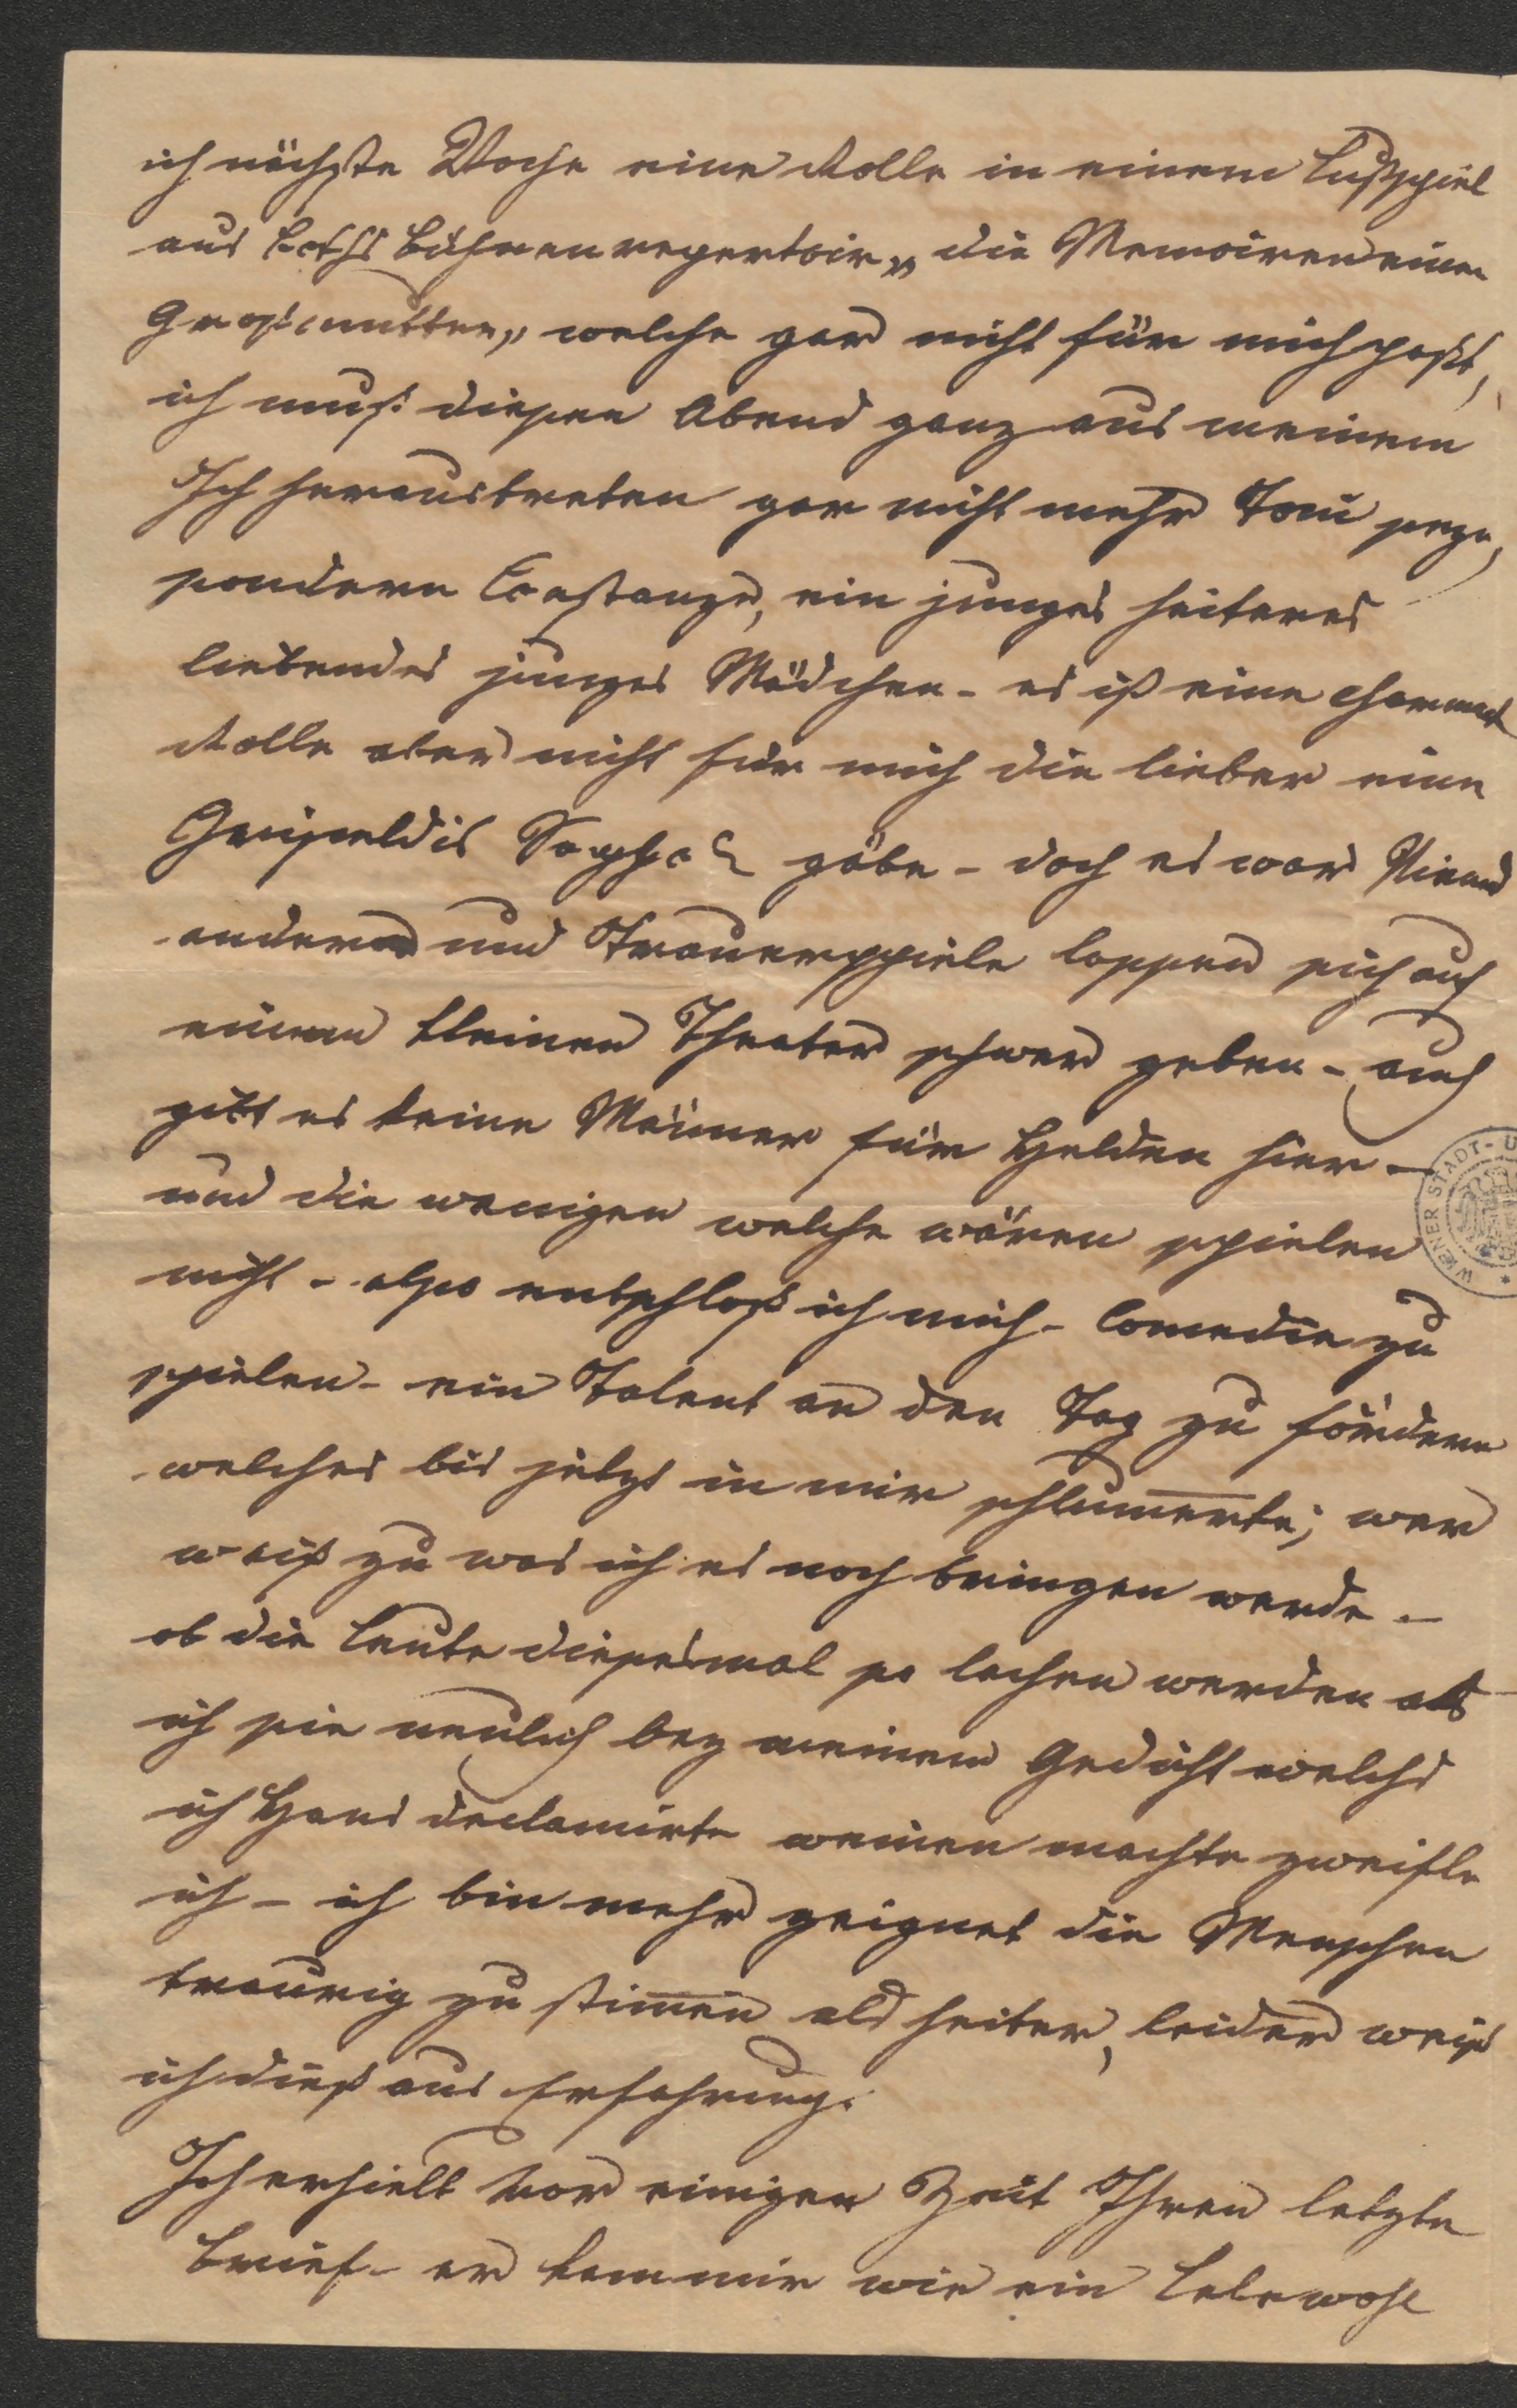 ich nächste Woche eine Rolle in einem Lustspiel
aus Boths Bühnenrepertoir „die Memoiren einer
Grossmutter„ welche gar nicht für mich paßt,
ich muß diesen Abend ganz aus meinem
Ich heraustreten gar nicht mehr Toni seyn,
sondern Constanze, ein junges heiteres
liebendes junges Mädchen - es ist eine charmant
Rolle aber nicht für mich die lieber eine
Griseldis Sappho gäbe - doch es war Niemd
anderes und Trauerspiele lassen sich auf
einem kleinen Theater schwer geben - auch
gibt es keine Männer für Helden hier -
und die wenigen welche wären spielen
nicht - also entschloß ich mich - Comedie zu
spielen - ein Talent an den Tag zu fördern
welches bis jetzt in mir schlum̅erte; wer
weiß zu was ich es noch bringen werde. -
ob die Leute diesesmal so lachen werden als
ich sie neulich bey meinem Gedicht welches
ich declamirte weinen machte zweifle
ich - ich bin mehr geignet die Menschen
traurig zu stim̅en als heiter, leider weiß
ich dieß aus Erfahrung.
Ich erhielt vor einiger Zeit Ihren letzten
Brief - er kam mir wie ein Lebewohl
WIENER STADT-U